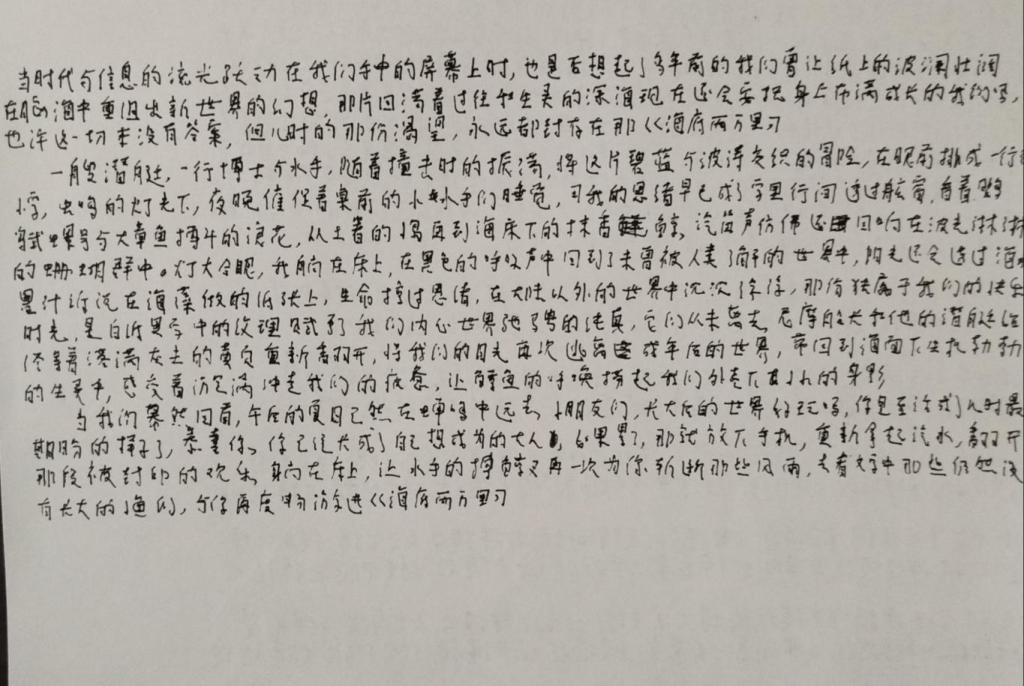 当时代与信息的流光跃动在我们手中的屏幕上时,也是否想起了多年前的我们曾让纸上的波澜壮阔
在脑海中重组出新世界的幻想,那片回荡着过往和生灵的深海现在还会安抚身上布满成长的我们吗,
也许这一切本没有答案,但儿时的那份渴望,永远都封存在那《海底两万里》
一艘潜艇,一行博士与水手,随着撞击时的振荡,将这片碧蓝与波涛交织的冒险,在眼前排成一行行
小字,虫鸣的灯光下,夜晚催促着桌前的小水手们睡觉,可我的思绪早已成了字里行间透过舷窗,看着鹦
鹉螺号与大章鱼搏斗的浪花,从土著的捣乱到海床下的抹香鲸,汽笛声仿佛还回响在波光淋淋
的珊瑚群中。灯火合眼,我躺在床上,在黑色的呼吸声中回到了未曾被人类了解的世界中,阳光还会透过海
墨汁淌在海藻做的纸张上,生命掠过思绪,在大陆以外的世界中沉沉浮浮,那份独属于我们的快乐
时光,是白纸黑字中的纹理赋予了我们内心世界的纯真,它们从未离去,尼摩船长和他的潜艇
等着添满灰尘的页重新翻开,将我们的目光再次逃离成年后的世界,带回到海面下生机勃勃
的生灵中,感受着沉没冲走我们的疲惫,让鲸鱼的呼唤扬起我们外壳下小小的身影
当我们蓦然回首,午后的夏日已然在蝉鸣中远去,小朋友们,长大后的世界好玩吗,你是否活成了儿时最
期盼的样子了,恭喜你,你已经长大成了自己想成为的大人,如果累了,那就放下手机,重新拿起汽水,翻开
那段被封印的欢乐,躺在床上,让水手的搏击又再一次为你斩断那些风雨,去看文字中那些仍然没
有长大的渔叉,与你再度畅游进《海底两万里》